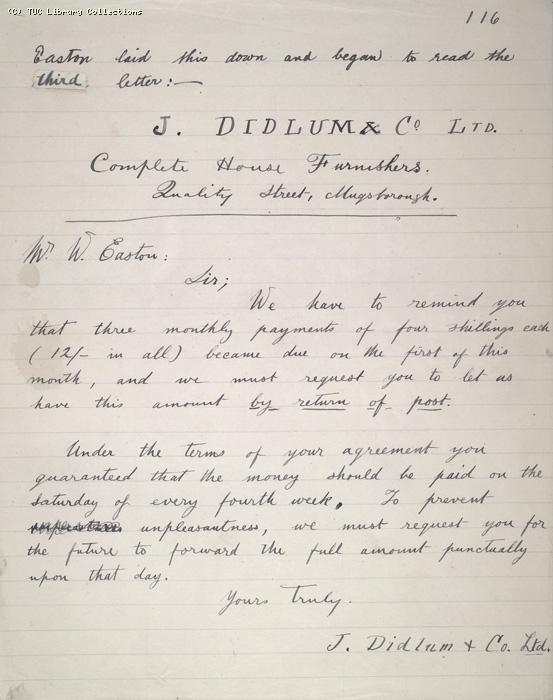 (C) TUC Library Collections
116
Easton laid this down and began to read the
third letter:—
J. DIDLUM & Co LTD.
Complete House Furnishers.
Quality Street, Mugsborough.
Mr W. Easton:
Sir;
We have to remind you
that three monthly payments of four shillings each
(12/- in all) became due on the first of this
month, and we must request you to let us
have this amount by return of post.
Under the terms of your agreement you
guaranteed that the money should be paid on the
Saturday of every fourth week. To prevent
unpleasantness, we must request you for
the future to forward the full amount punctually
upon that day.
Yours Truly.
J. Didlum & Co. Ltd.